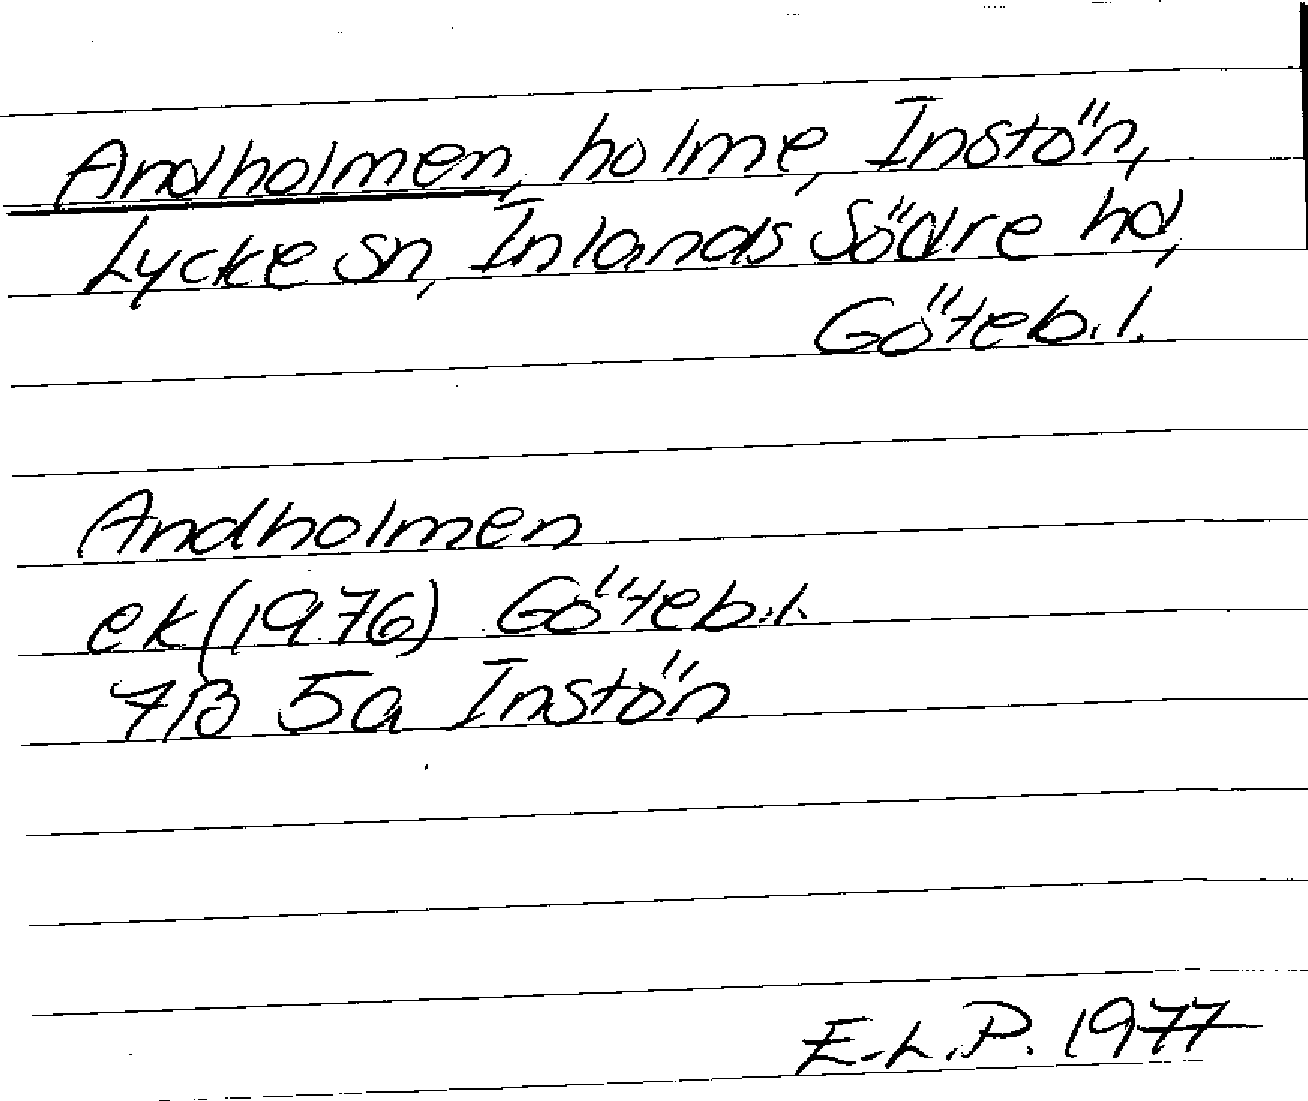 Andholmen, holme, Instön,
Lycke sn, Inlands Södre hd,
Göteb. l.
Andholmen
ek (1976) Göteb. l.
7B 5a Instön
E-L. P. 1977